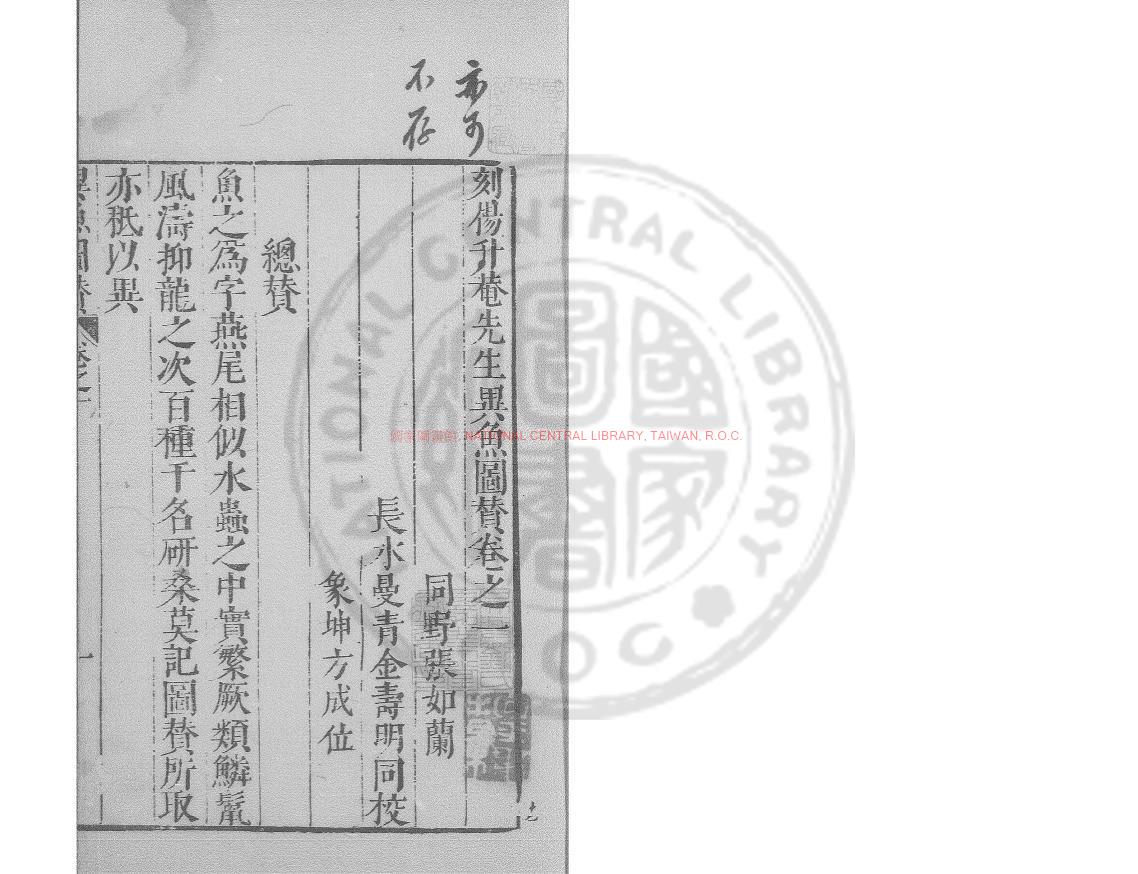 亦可
不存
刻楊升菴先生異魚圖贊卷之一
同野張如蘭
長水曼青金壽明同校
象坤方成位
總贊
魚之為字燕尾相似水蟲之中實繁厥類鱗鬣
風濤抑龍之次百種千名研桑莫記圖贊所取
亦秪以異
異魚圖贊 卷之一
一
NATIONAL CENTRAL LIBRARY
R O C
國家圖書館, NATIONAL CENTRAL LIBRARY, TAIWAN, R.O.C.